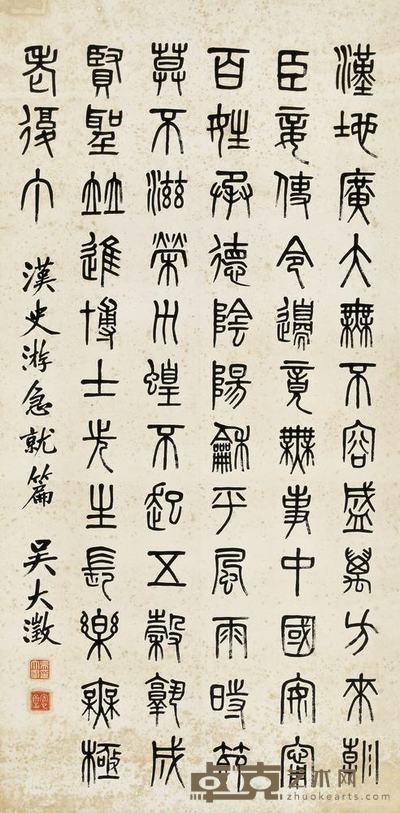 漢地廣大無不容盛萬方來朝
臣妾使令邊竟無事中國安寧
百姓承德陰陽龢平風雨時節
莫不滋榮災蝗不起五穀孰成
賢聖竝進博士先生長樂無極
老復丁
漢史游急就篇 吳大澂
卓克艺术网
zhuokearts.com